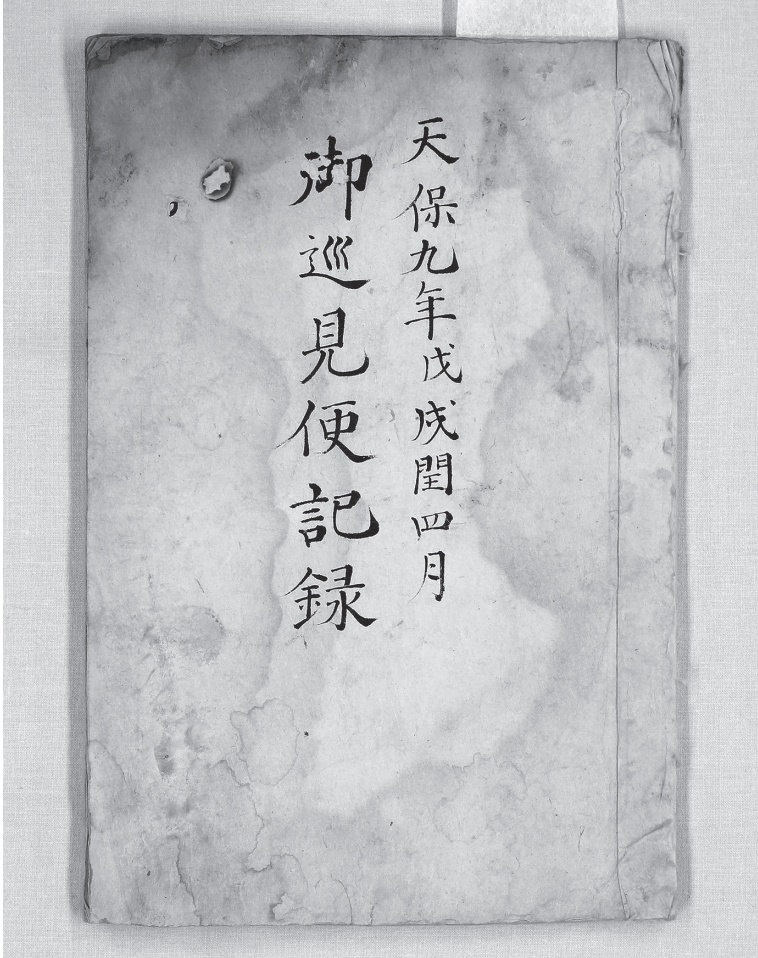 天保九年戊戌閏四月
御巡見便記録